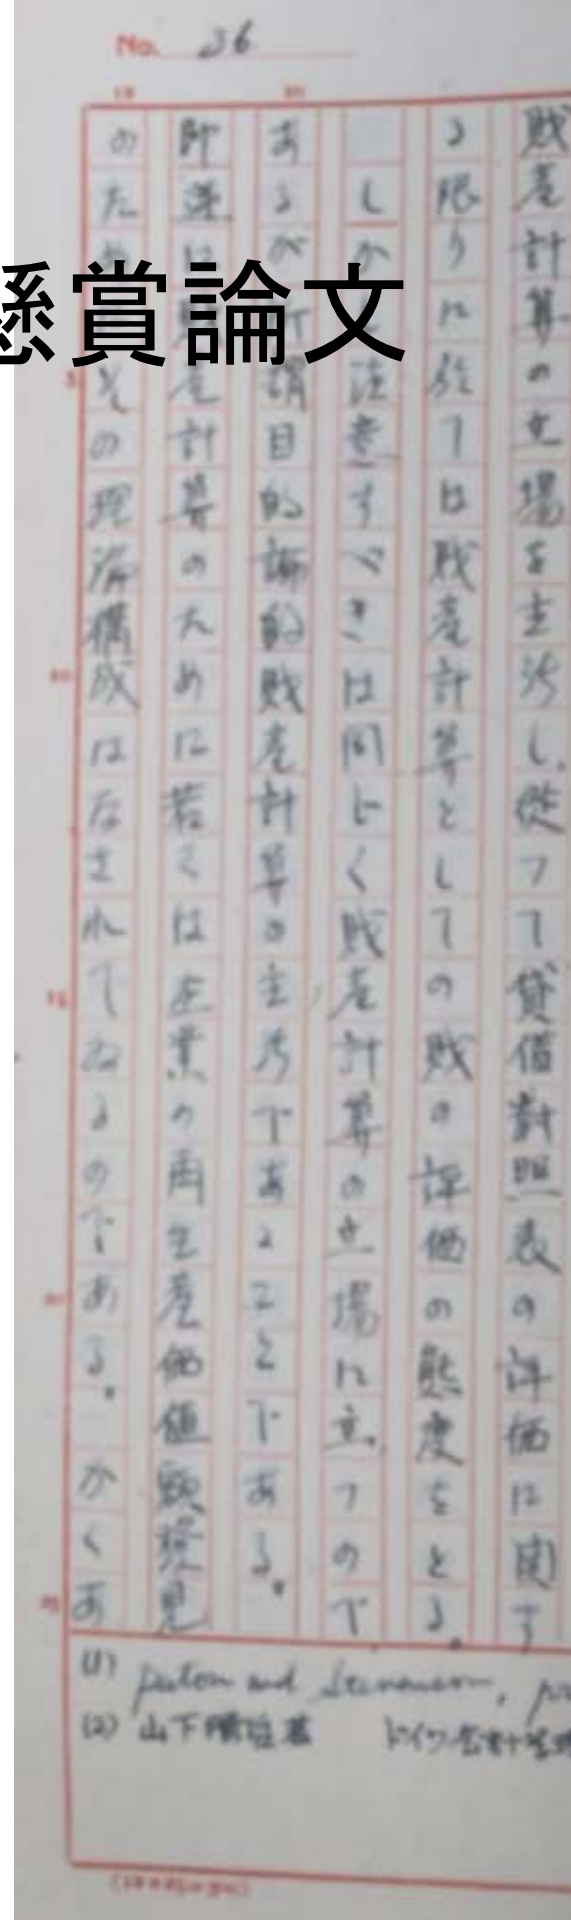 No. 36
懸賞論文
財産計算の立場を主張し、従つて貸借対照表の評価に関す
る限りに於ては財産計算としての財の評価の態度をとる。
しか 注意すべきは同じく財産計算の立場に立つので
あるが 謂目的論的財産計算の主張であることである。
即逆に 産計算のために若くは企業の再生産価値額発見
のため その理論構成はなされてゐるのである。かくあ
(1) Paton and Stevenson,
(2) 山下勝治著 ドイツ会計学